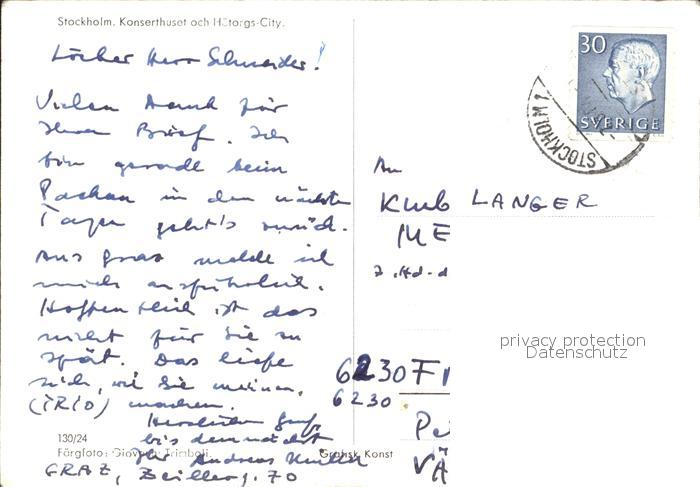 Stockholm. Konserthuset och Hötorgs-City.
Lieber Herr Schneider!
Vielen Dank für
Ihren Brief. Ich
bin gerade beim
Packen in den nächsten
Tagen geht's zurück.
Aus Graz melde ich
mich ausführlich.
Hoffentlich ist das
nicht für Sie zu
spät. Das ließe
sich, wie Sie meinen,
(TRIO) machen.
Herzlichen Gruß,
bis demnächst
Ihr Andreas
GRAZ, 70
130/24
Färgfoto: Giovanni Trimboli.
Grafisk Konst
30
SVERIGE
STOCKHOLM 1
An
Klub LANGER
ME
z.Hd. d
6230 F
6230
Pe
VÄ
privacy protection
Datenschutz